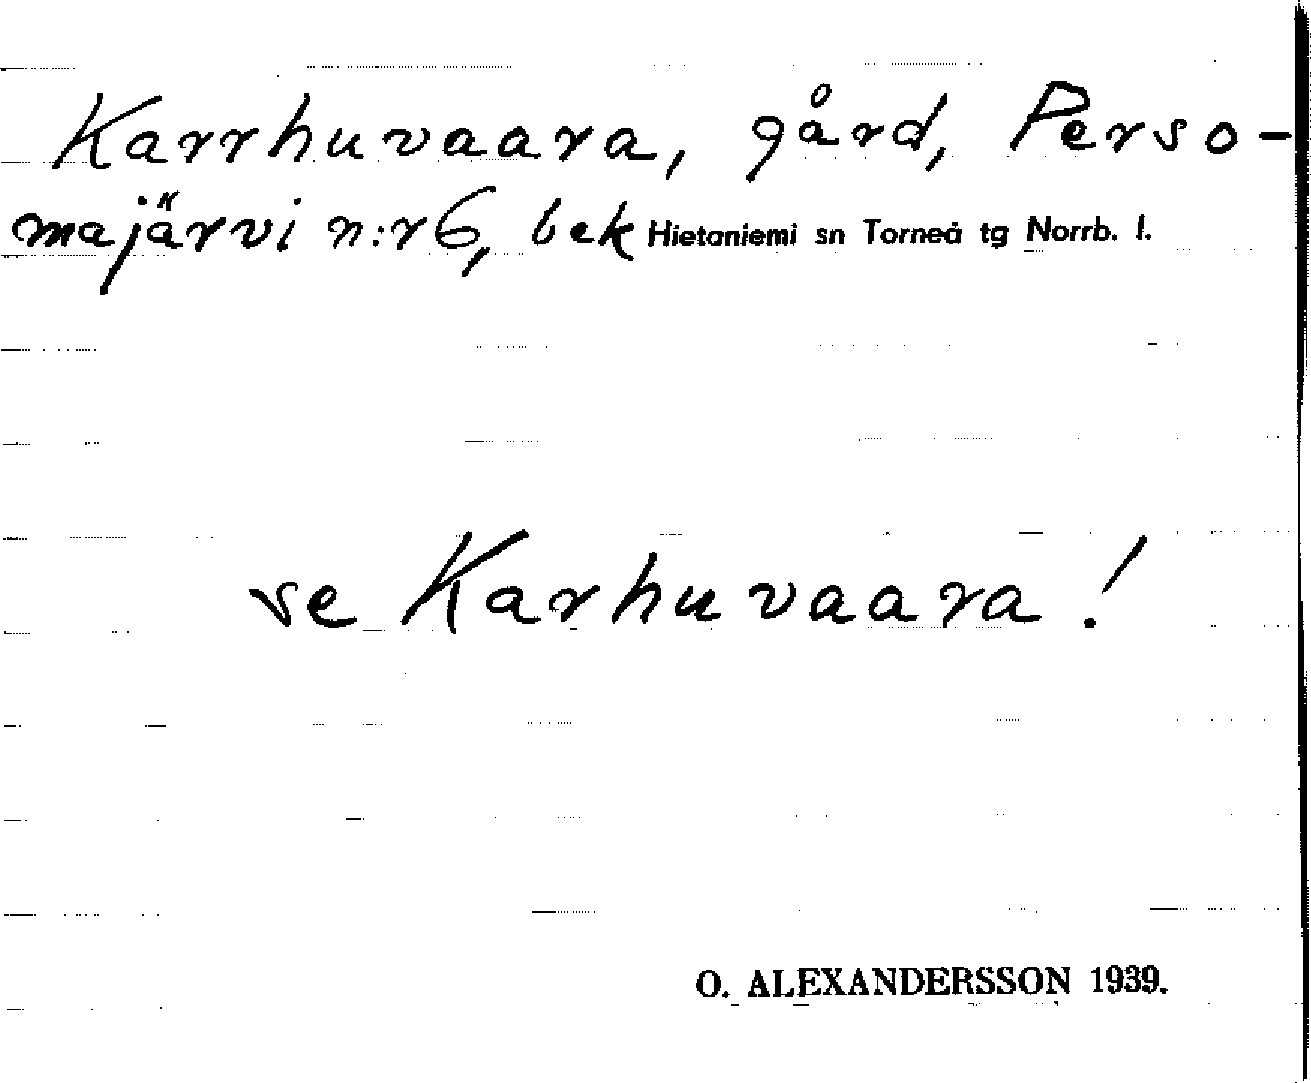 Karrhuvaara, gård, Perso-
majärvi n:r 6, bek Hietaniemi sn Torneå tg Norrb. l.
se Karhuvaara!
O. ALEXANDERSSON 1939.